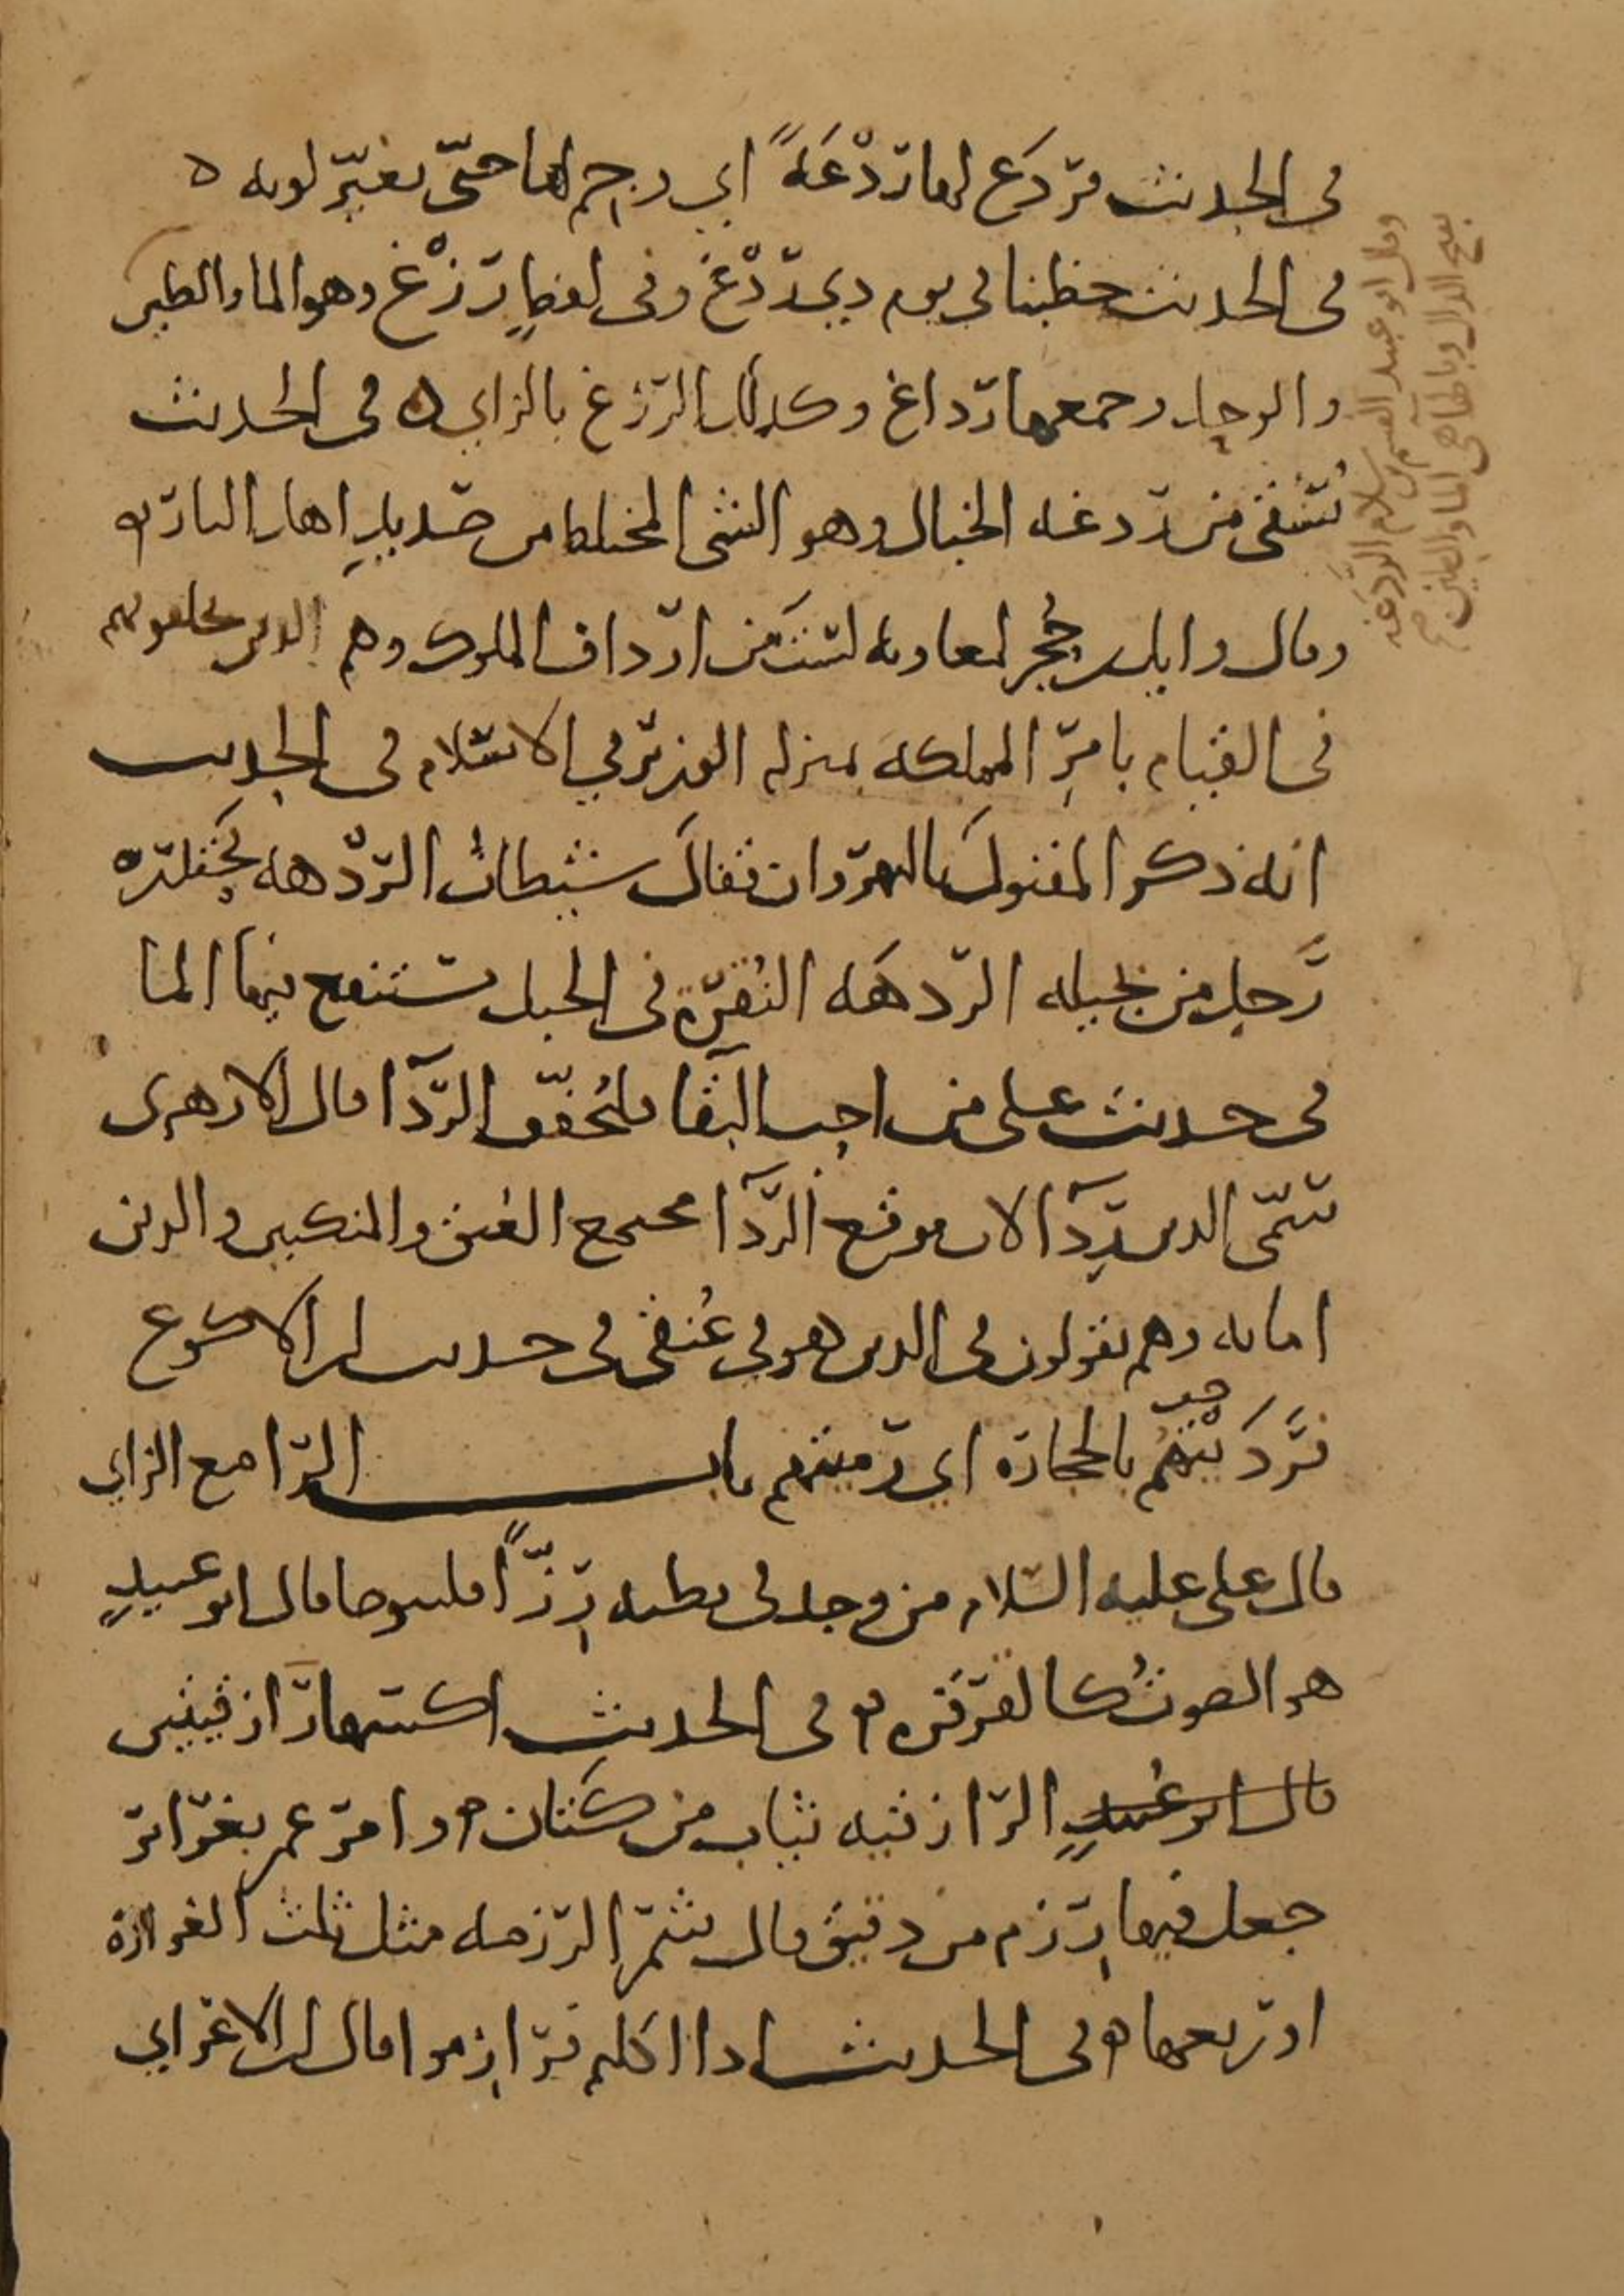 في الحديث فردع لها ردعةً اي وجم لها حتى تغير لونه ه
في الحديث خطبنا في يوم ذي ردغ وفي لفظٍ رزغ وهو الماء والطين
والوحل وجمعها رداغ وكذلك الرزغ بالزاي ه في الحديث
سقي من ردغة الخبال وهو الشي المختلط من صديد اهل النار ه
وقال وايل بن حجر لمعاوية لست من ارداف الملوك وهم الذين يخلفونهم
في القيام بامر المملكة بمنزلة الوزير في الاسلام في الحديث
انه ذكر المقتول بالنهروان فقال شيطان الردهة يحتدره
رجل من بجيلة الردهة النقرة في الجبل يستنقع فيها الما
في حديث علي من احب البقا فليخفف الردا قال الازهري
سمى الدين ردآ لان موقع الردآ مجتمع العنق والمنكبين والدين
امانة وهم يقولون في الدين هو في عنقي في حديث ابن الاكوع
فرديتهم بالحجارة اي رميتهم باب الرا مع الزاي
قال علي عليه السلام من وجد في بطنه رزاً فليتوضا قال ابو عبيدٍ
هو الصوت كالقرقرة ه في الحديث اكسها رازقيتين
قال ابو عبيدٍ الرازقية ثياب من كتان ه وامر عمر بغراير
جعل فيها رزم من دقيق قال شمر الرزمة مثل ثلث الغرارة
او ربعها ه في الحديث اذا اكلتم فرازموا قال ابن الاعرابي
وقال ابو عبيد القسم بن سلام الردغه
بفتح الدال وبالهاهي الماء والطين صح